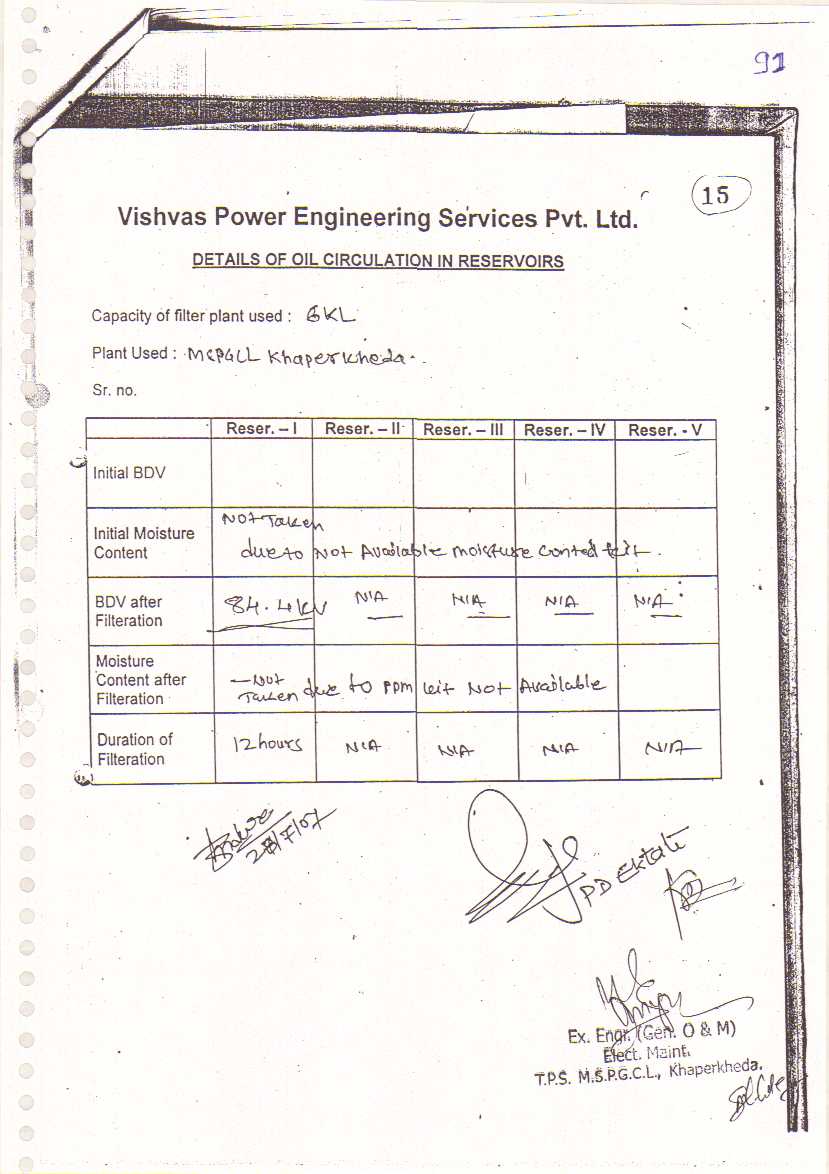 91
15
Vishvas Power Engineering Services Pvt. Ltd.
DETAILS OF OIL CIRCULATION IN RESERVOIRS
Capacity of filter plant used : 6KL
Plant Used : MSPGCL Khaperkheda.
Sr. no.
Reser. – I Reser. – II Reser. – III Reser. – IV Reser. - V
Initial BDV
Initial Moisture Content Not Taken
due to Not Available moisture kit.
BDV after Filteration 84.4kV N/A N/A N/A N/A
Moisture Content after Filteration – Not
Taken due to PPM kit Not Available
Duration of Filteration 12 hours N/A N/A N/A N/A
28/7/07
PD Ektate
Ex. Engr. (Gen. O & M)
Elect. Maint.
T.P.S. M.S.P.G.C.L., Khaperkheda.